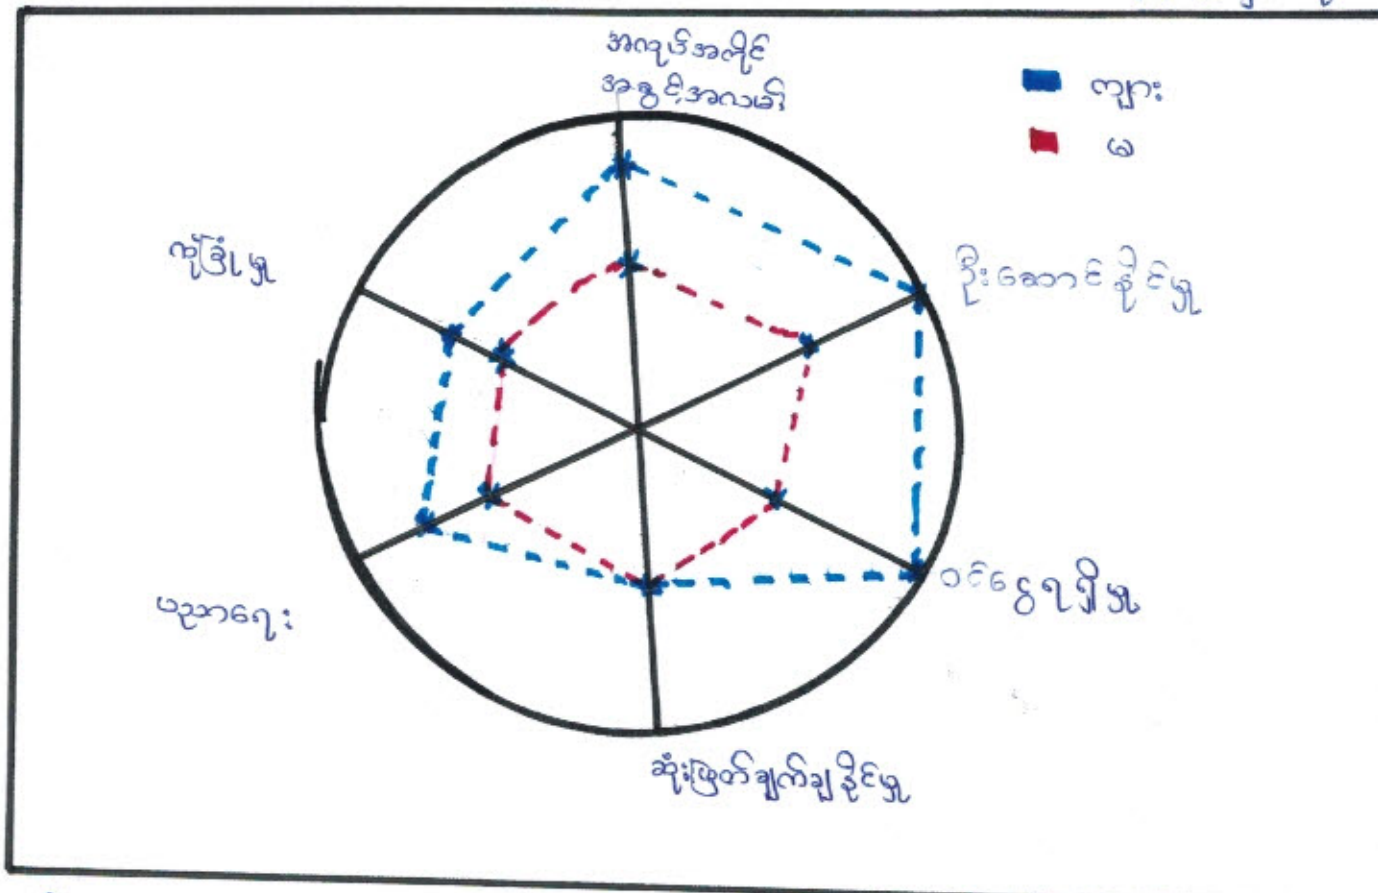 အလုပ်အကိုင်
အခွင့်အလမ်း
ကျား
မ
ဦးဆောင်နိုင်မှု
ဝင်ငွေရရှိမှု
ဆုံးဖြတ်ချက်ချနိုင်မှု
ပညာရေး
ကိုယ်ခြုံမှု